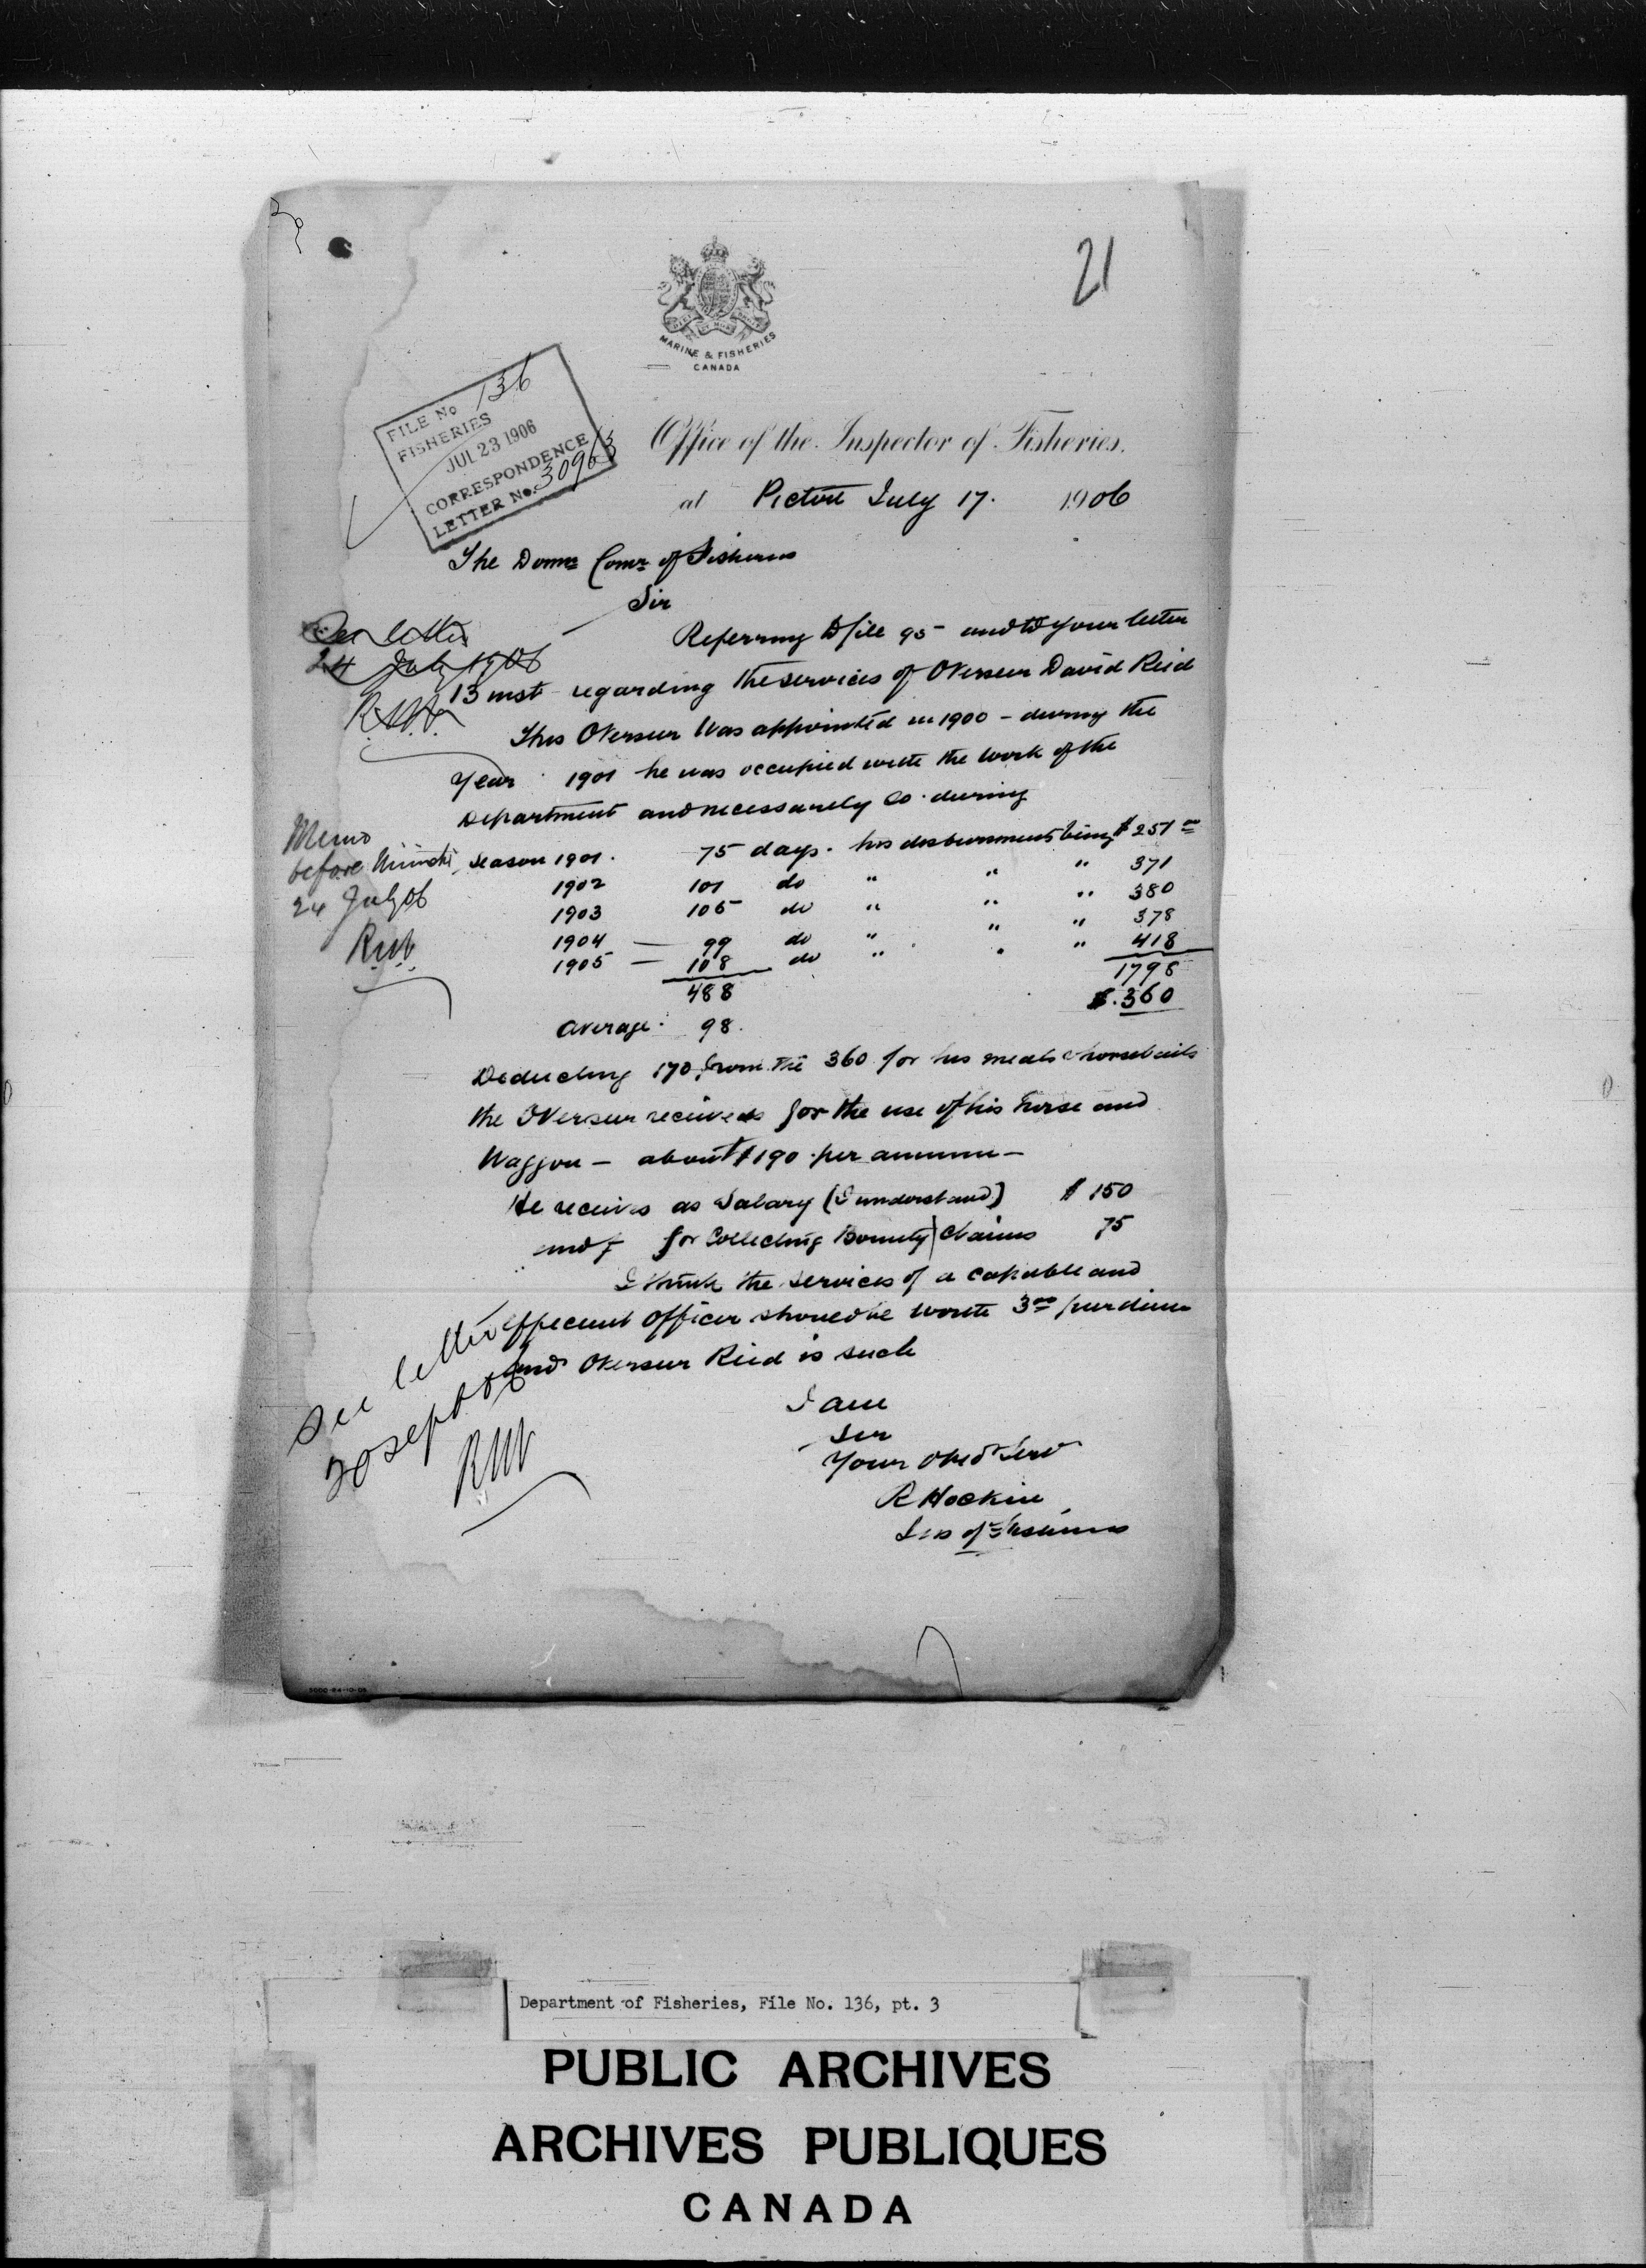 21
MARINE & FISHERIES
CANADA
FILE No 136
FISHERIES
JUL 23 1906
CORRESPONDENCE
LETTER No. 30963
Office of the Inspector of Fisheries.
at Pictou July 17. 1906
The Domn Comr of Fisheries
Sir
Referring to file 95 and to your letter
13 inst regarding the services of Overseer David Reid
This Overseer was appointed in 1900 - during the
Year 1901 he was occupied with the work of the
Department and necessarily so during
Season 1901. 75 days. his disbursements being $251 00
1902 101 do " " " 371
1903 105 do " " " 380
1904 — 99 do " " " 378
1905 — 108 do " " " 418
488 1798
Average. 98. $.360
Deducting 170 from the 360 for his meals & horse baits
the Overseer receives for the use of his horse and
Waggon — about $190 per annum —
He receives as Salary (I understand) $150
and for Collecting Bounty Claims 75
I think the services of a capable and
efficient Officer should be worth 3 00 per diem
and Overseer Reid is such
I am
Sir
Your Obedt Servt
R Hockin
Ins of Fisheries
See letter
24 July 1906
Memo
before Minister
24 July 06
See letter
20 Sept 06
5000-24-10-05
Department of Fisheries, File No. 136, pt. 3
PUBLIC ARCHIVES
ARCHIVES PUBLIQUES
CANADA